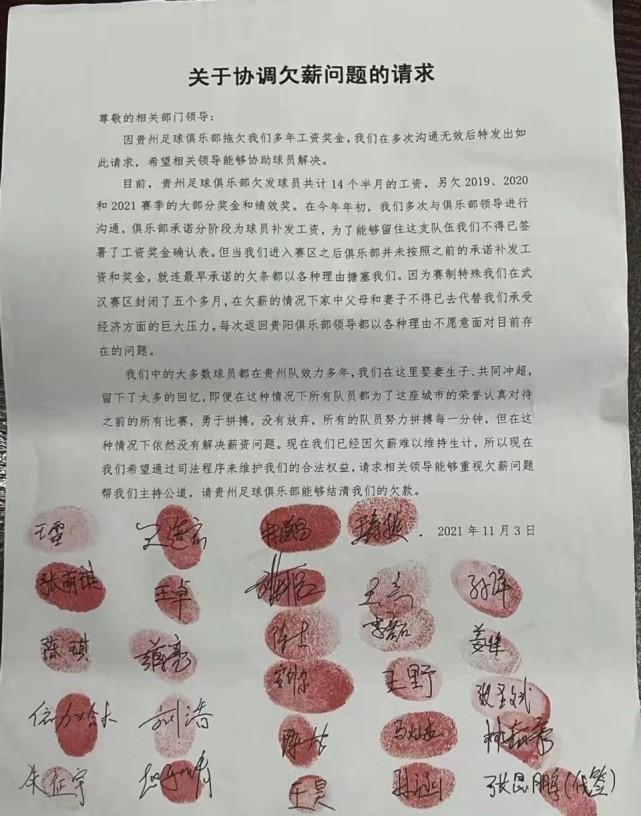 关于协调欠薪问题的请求
尊敬的相关部门领导：
因贵州足球俱乐部拖欠我们多年工资奖金，我们在多次沟通无效后特发出如
此请求，希望相关领导能够协助球员解决。
目前，贵州足球俱乐部欠发球员共计14个半月的工资，另欠2019、2020
和2021赛季的大部分奖金和绩效奖。在今年年初，我们多次与俱乐部领导进行
沟通，俱乐部承诺分阶段为球员补发工资，为了能够留住这支队伍我们不得已签
署了工资奖金确认表。但当我们进入赛区之后俱乐部并未按照之前的承诺补发工
资和奖金，就连最早承诺的欠条都以各种理由搪塞我们。因为赛制特殊我们在武
汉赛区封闭了五个多月，在欠薪的情况下家中父母和妻子不得已去代替我们承受
经济方面的巨大压力。每次返回贵阳俱乐部领导都以各种理由不愿意面对目前存
在的问题。
我们中的大多数球员都在贵州队效力多年，我们在这里娶妻生子、共同冲超，
留下了太多的回忆，即便在这种情况下所有队员都为了这座城市的荣誉认真对待
之前的所有比赛，勇于拼搏，没有放弃，所有的队员努力拼搏每一分钟，但在这
种情况下依然没有解决薪资问题。现在我们已经因欠薪难以维持生计，所以现在
我们希望通过司法程序来维护我们的合法权益，请求相关领导能够重视欠薪问题
帮我们主持公道，请贵州足球俱乐部能够结清我们的欠款。
2021年11月3日
张萌琪 王卓
陈琪
刘浩 王野
朱征宇 王昊 张昆鹏（代签）